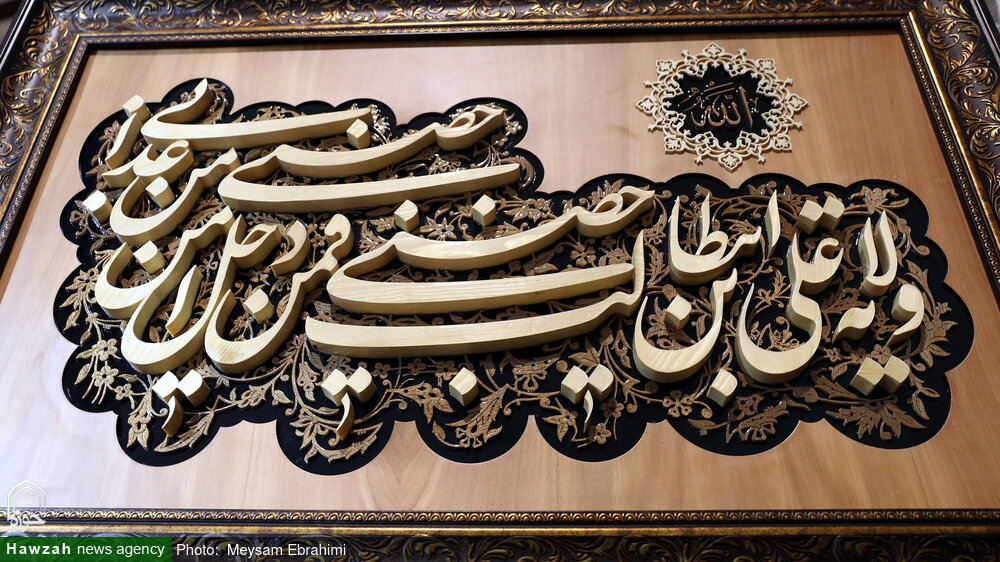 الله
ولایه علی بن ابیطالب حصنی فمن دخل حصنی امن من عذابی
Hawzah news agency Photo: Meysam Ebrahimi